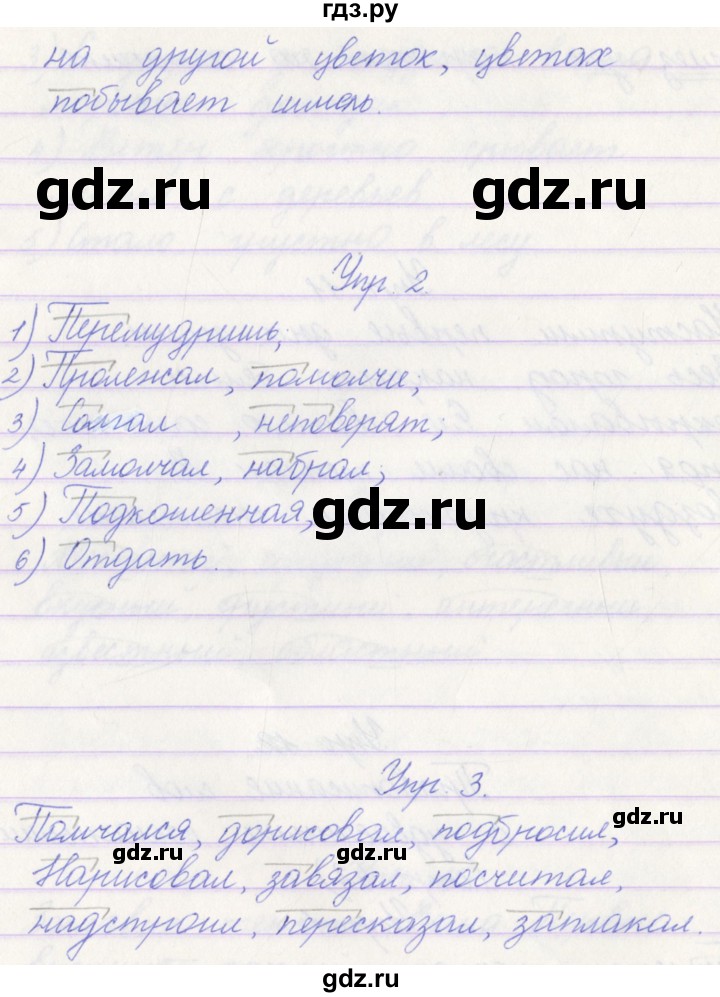 гдз.ру
на другой цветок, цветах
побывает шмель.
gdz.ru gdz.ru
Упр. 2.
1) Перемудришь;
2) Пролежал, помолчи;
3) Солгал , неповерят;
4) Замолчал, набрал;
5) Подкошенная,
gdz.ru
6) Отдать.
Упр. 3.
Помчался, дорисовал, подбросил,
gdz.ru gdz.ru gdz.ru
Нарисовал, завязал, посчитал,
надстроил, пересказал, заплакал.
gdz.ru gdz.ru
gdz.ru